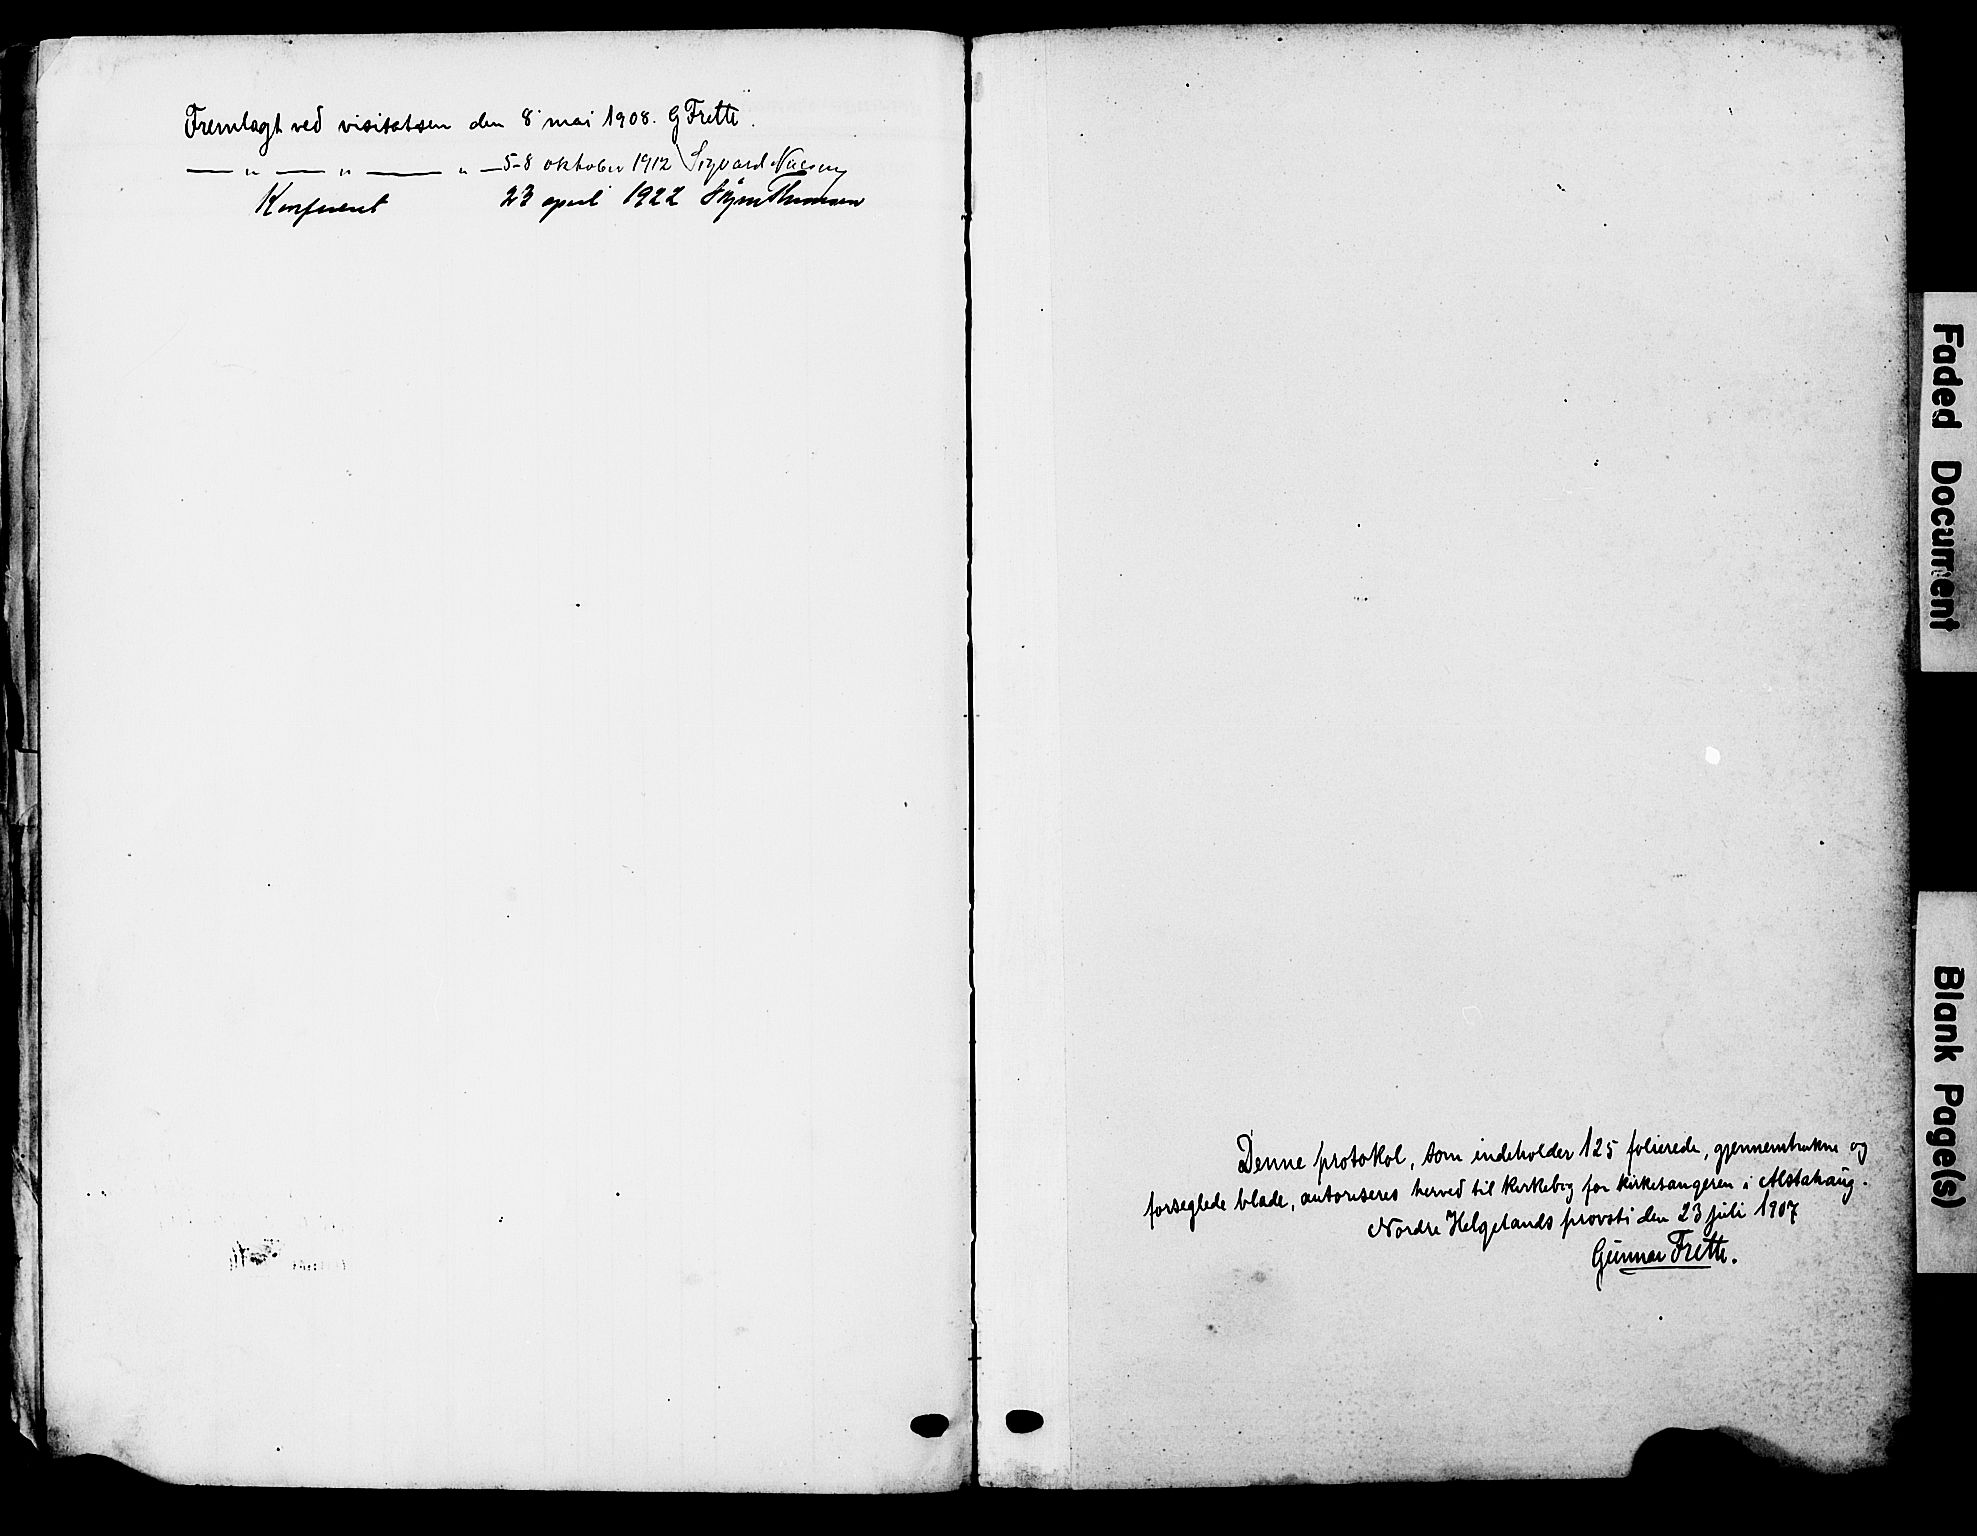 Fremlagt ved visitatsen den 8' mai 1908. G Frette.
— " — " — " — 5-8 oktober 1912 Sigvard Nielsen
Konfereret 23 april 1922
Denne protokol, som indeholder 125 folierede, gjennemtrukne og
forseglede blade, autoriseres herved til kirkebog for kirkesangeren i Alstahaug.
Nordre Helgelands provsti den 23 juli 1907
Gunnar Frette.
Faded Document
Blank Page(s)